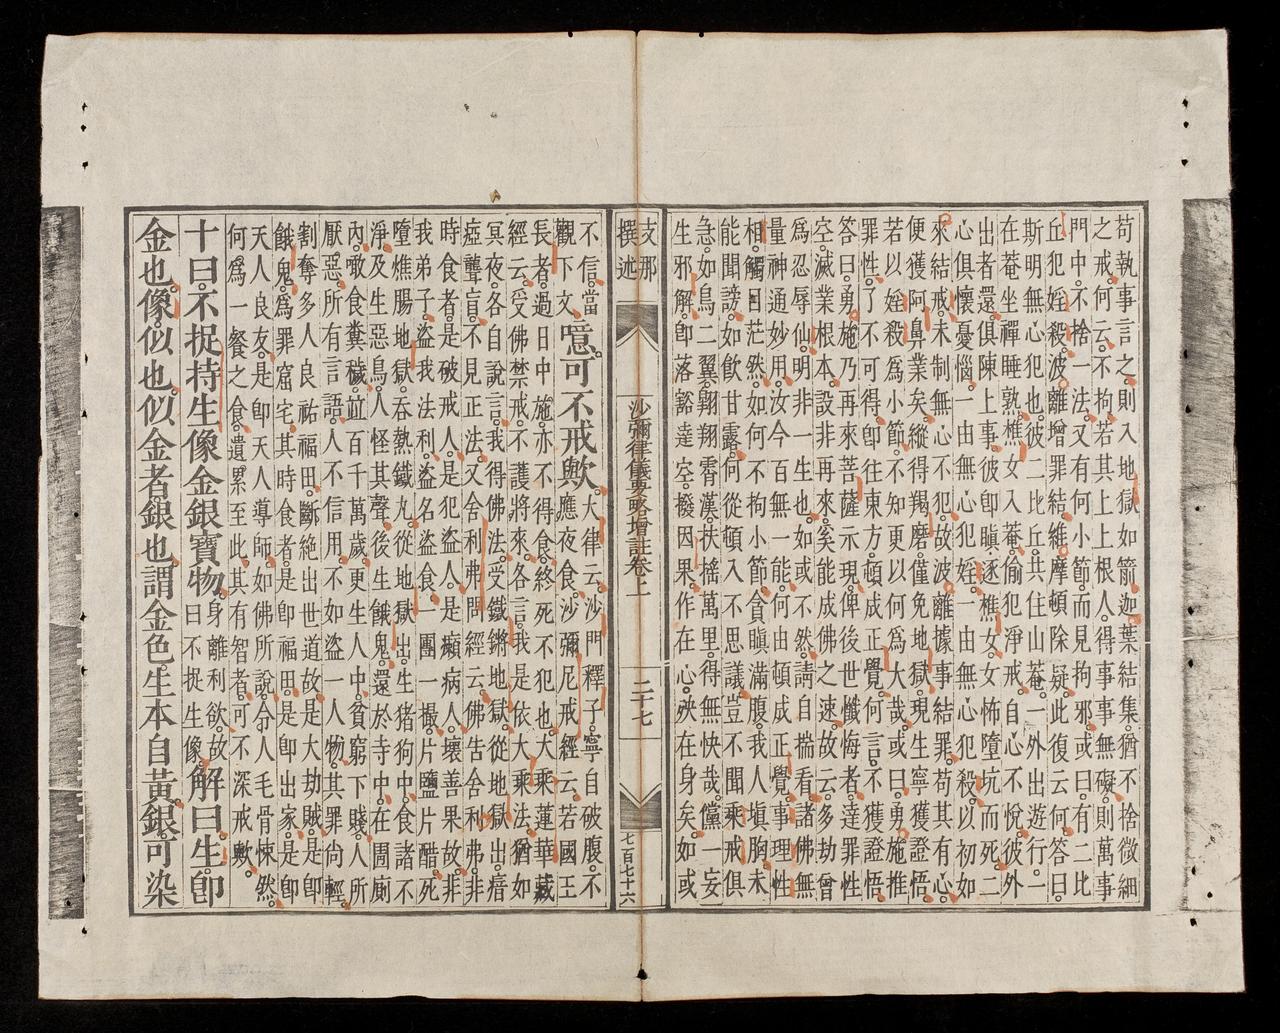 苟執事言之。則入地獄如箭。迦葉結集。猶不捨微細
之戒。何云不拘。若其上上根人。得事事無礙。則萬事
門中。不捨一法。又有何小節。而見拘邪。或曰。有二比
丘犯婬殺。波離增罪結。維摩頓除疑。此復云何。答曰。
斯明無心犯也。彼一比丘。共住山菴。一外出遊行。一
在菴坐禪睡熟。樵女入菴。偷犯淨戒。自心不悅。彼外
出者還。俱陳上事。彼即瞋逐樵女。女怖墮坑而死。二
心俱懷憂惱。一由無心犯婬。一由無心犯殺。以初如
來結戒。未制無心不犯。故波離據事結罪。苟其有心。
便獲阿鼻業矣。縱得羯磨。僅免地獄。現生寧獲證悟。
若以婬殺爲小節。不知更以何爲大哉。或曰。勇施推
罪性。了不可得。卽往東方。頓成正覺。何言不獲證悟。
答曰。勇施乃再來菩薩示現。俾後世懺悔者。達罪性
空。滅業根本。設非再來。奚能成佛之速。故云多劫曾
爲忍辱仙。明非一生也。如或不然。請自揣看。諸佛無
量神通妙用。汝今百無一能。何由頓成正覺。事理性
相。觸目茫然。如何不拘小節。貪瞋滿腹。我人塡胸。未
能聞謗如飲甘露。何從頓入不思議。豈不聞乘戒俱
急。如鳥二翼。翺翔霄漢。扶搖萬里。得無快哉。儻一妄
生邪解。卽落豁達空。撥因果。作在心。殃在身矣。如或
支那
撰述
沙彌律儀要略增註卷上
二十七
七百七十六
不信。當
觀下文。
噫。可不戒歟。
大律云。沙門釋子。寧自破腹。不
應夜食。沙彌尼戒經云。若國王
長者。過日中施。亦不得食。終死不犯也。大乘蓮華藏
經云。受佛禁戒。不護將來。各言我是依大乘法。猶如
冥夜。各自說言。我得佛法。受鐵鏘地獄。從地獄出。瘖
瘂聾盲。不見正法。又舍利弗問經云。佛告舍利弗。非
時食者。是破戒人。是犯盜人。是癩病人。壞善果故。非
我弟子。盜我法利。盜名盜食。一團一撮。片鹽片酷。死
墮燋腸地獄。吞熱鐵丸。從地獄出。生猪狗中。食諸不
淨。及生惡鳥。人怪其聲。後生餓鬼。還於寺中。在圊廁
內。噉食糞穢。竝百千萬歲。更生人中。貧窮下賤。人所
厭惡。所有言語。人不信用。不如盜一人物。其罪尙輕。
割奪多人良祐福田。斷絕出世道故。是大劫賊。是卽
餓鬼。爲罪窟宅。其時食者。是卽福田。是卽出家。是卽
天人良友。是卽天人導師。如佛所說。令人毛骨悚然。
何爲一餐之食。遺累至此。其有智者。可不深戒歟。
十曰。不捉持生像金銀寶物。
身離利欲。故
曰不捉生像。
解曰。生。卽
金也。像。似也。似金者銀也。謂金色。生本自黃。銀可染